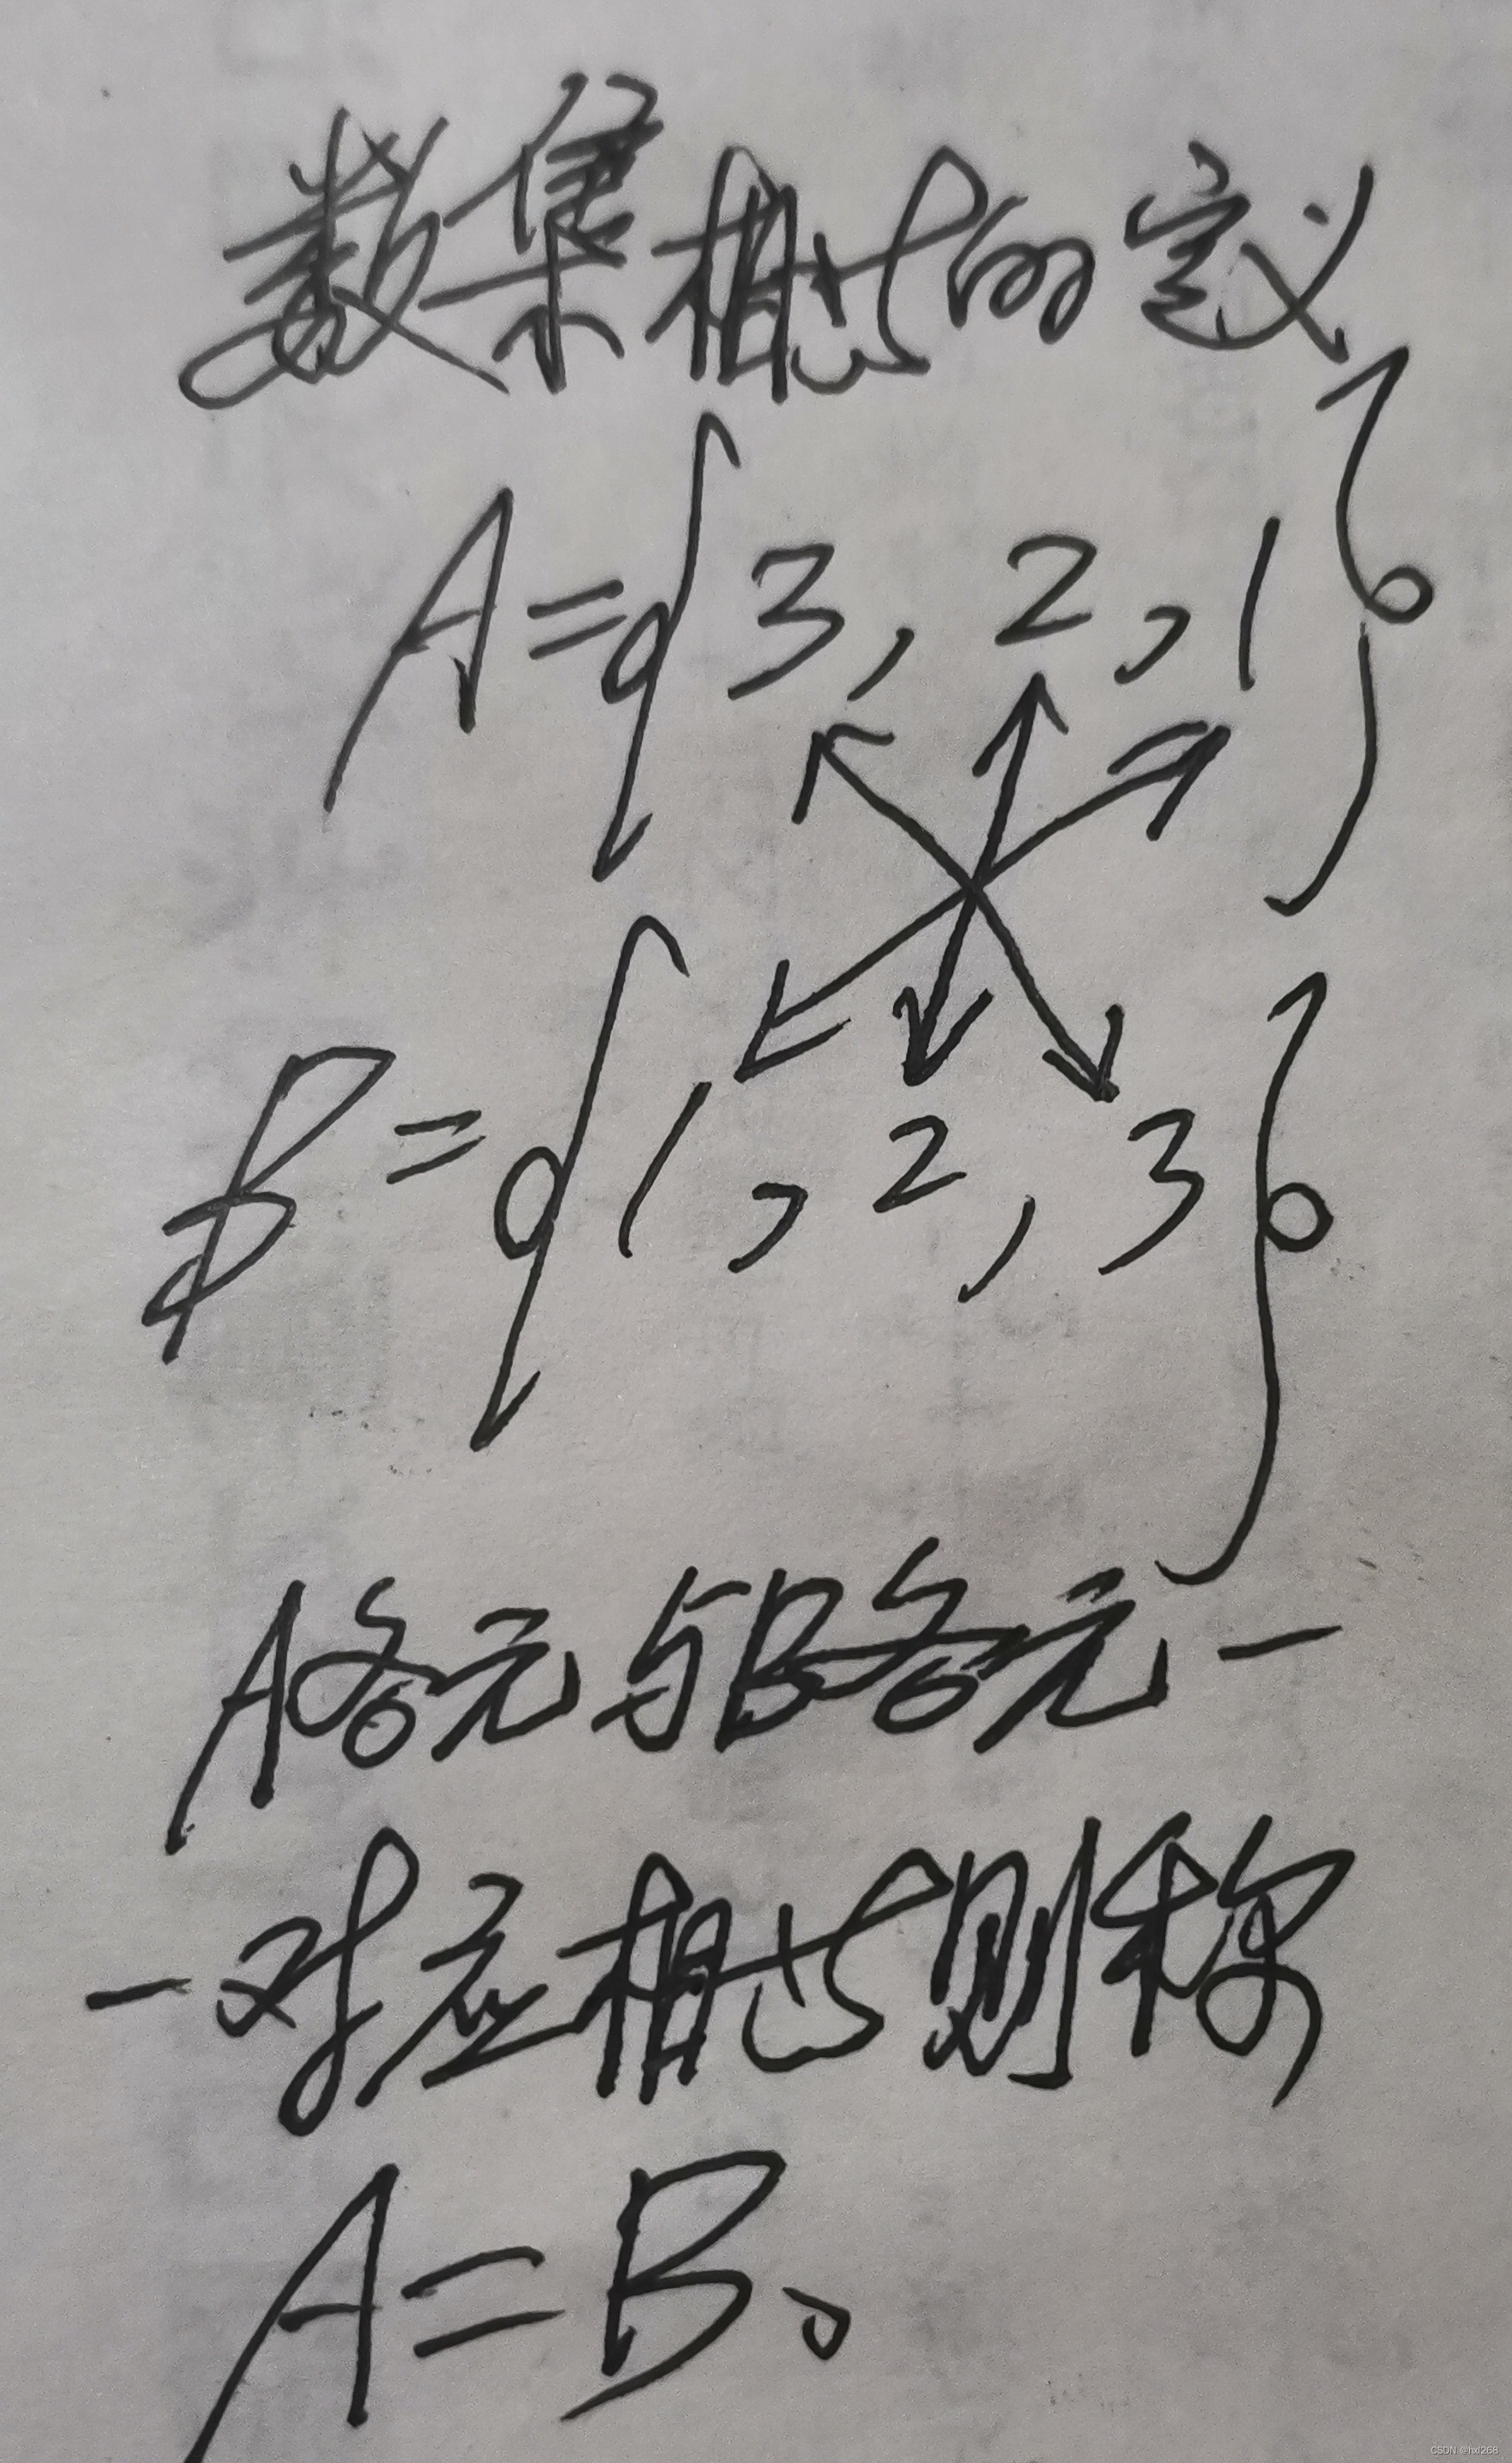 数集相等的定义
A={3,2,1}
B={1,2,3}
A各元与B各元一
一对应相等则称
A=B。
CSDN @hxl268